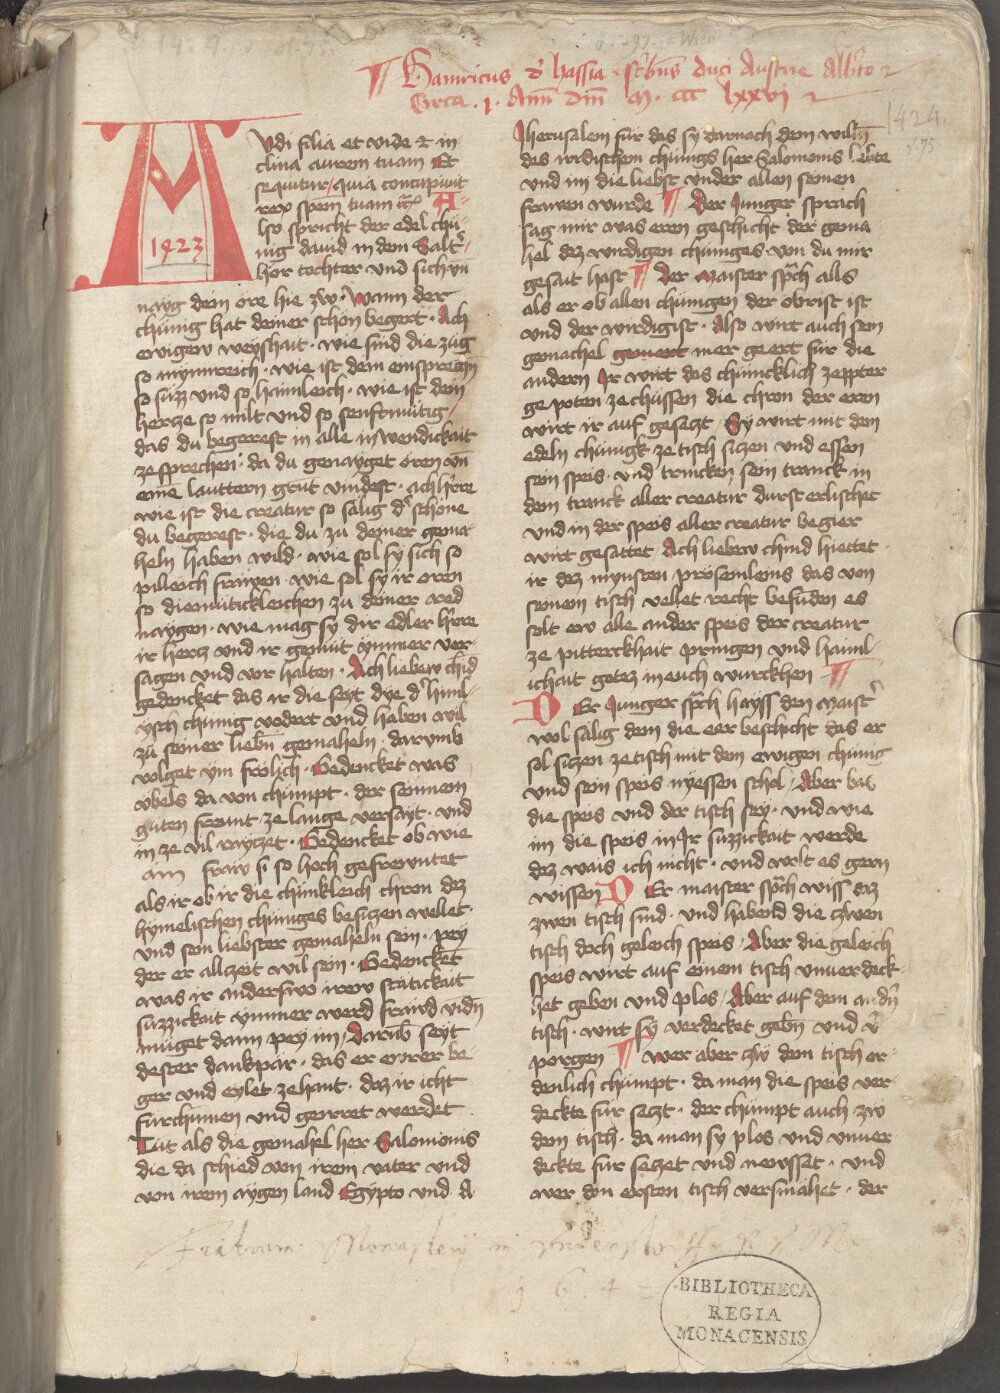 Hainricus d' hassia scbens duci Austrie Alb'to
Circa . 1 . Ann dm M ccc lxxvi
1424
Audi filia et vide et in
clina aurem tuam Et
sequitur / quia concupiuit
rex spem tuam A
lso spricht der edel chü
nig dauid in dem Salt'
hor tochter vnd sich vn
1423
nayg dein ore hie zw · Wann der
chünig hat deiner schon begert · Ach
ewigew weyshait · wie sind die züg
so mynnreich · wie ist dein einsprechn
so süzz vnd so haimleich · wie ist dein
hercze so milt vnd so senftmütig /
das du begerest in alle inwendickait
zesprechen · da du genayget oren vn
eine lauttern grut vindest · ach h're
wie ist die creatur so salig d' schöne
du begerest · die du zu deiner gema
heln haben wild · wie sol sy sich so
pilleich frawen · wie sol sy ir oren
so diemutickleichen zu deiner red
naygen · wie mag sy dir edler h're
ir hercz vnd ir gemüt ymmer ver
sagen vnd vor halten · Ach liebew chind
gedencket das ir die seyt dye d' himl
ysch chunig vodert vnd haben wil
zu seiner liebn gemaheln · darumb
volget ym frölich · Gedencket was
vbels da von chumpt · der seinem
guten freunt ze lange versayt · vnd
in ze vil rayczet · Gedencket ob wie
am fraw si so hoch gefrewntet
als ir ob ir die chünkleich chron dez
hymelischen chüniges besiczen wellet
vnd sein liebster gemaheln sein · pey
der er allzeit wil sein · Gedencket
was ir anderswo irew statickait
süzzickait ymmer werd frawd vindn
müget dann pey im / Darub seyt
dester danckpär · das er ewrer be
ger vnd eylet zehant · daz ir icht
fürchumen vnd geirret werdet
Tüt als die gemahel her Salomonis
die da schied von irem vater vnd
von irem aygen land Egypto vnd A
Jherusalem für das sy darnach dem willn
des irrdischen chünigs her Salomonis lebte
vnd im die liebst vnder allen seinen
frawen wurde Der Junger sprach
sag mir was eren geschicht der gema
hel dez wirdigen chüniges von du mir
gesait hast Der maister sp'ch alls
als er ob allen chünigen der obrist ist
vnd der wirdigist · Also wirt auch sein
gemachel geuert mer geert für die
andern Ir wirt des chünicklich zeppter
ge poten ze chüssen die chron der eren
wirt ir auf gesaczt / Sy wirt mit dem
edeln chunigk ze tisch siczen vnd essen
sein speis · vnd trincken sein tranck in
dem tranck aller creatur durst erlischet
vnd in der speis aller creatur begier
wirt gesattet Ach liebew chind hiettet
ir dez mynsten prösemleins das von
seinem tisch vellet recht befunden es
solt ew alle ander speis der creatur
ze pitterckhait pringen vnd haiml
ichait gotez in euch wurckhen
Der Junger sp'ch hayss den maist'
wol salig dem die eer beschicht das er
sol siczen ze tisch mit dem ewigen chunig
vnd sein speis nyessen schol / Aber bat
die speis vnd der tisch sey · vnd wie
im die speis in Ir suzzickait werde
dez wais ich nicht · vnd wolt es gern
wissen Der maister sp'ch wiss daz
zwen tisch sind · vnd habend die zwen
tisch doch geleich speis / Aber die geleich
speis wirt auf einem tisch vnuerdeck
het geben vnd plos / Aber auf dem andn
tisch · wirt sy verdecket gebn vnd v'
porgen wer aber zw dem tisch or
denlich chumpt · da man die speis ver
deckte für seczt · der chumpt auch zw
dem tisch · da man sy plos vnd vnuer
deckte fur seczet vnd newsset · vnd
wer den ersten tisch versmahet · der
1 6 4
BIBLIOTHECA
REGIA
MONACENSIS